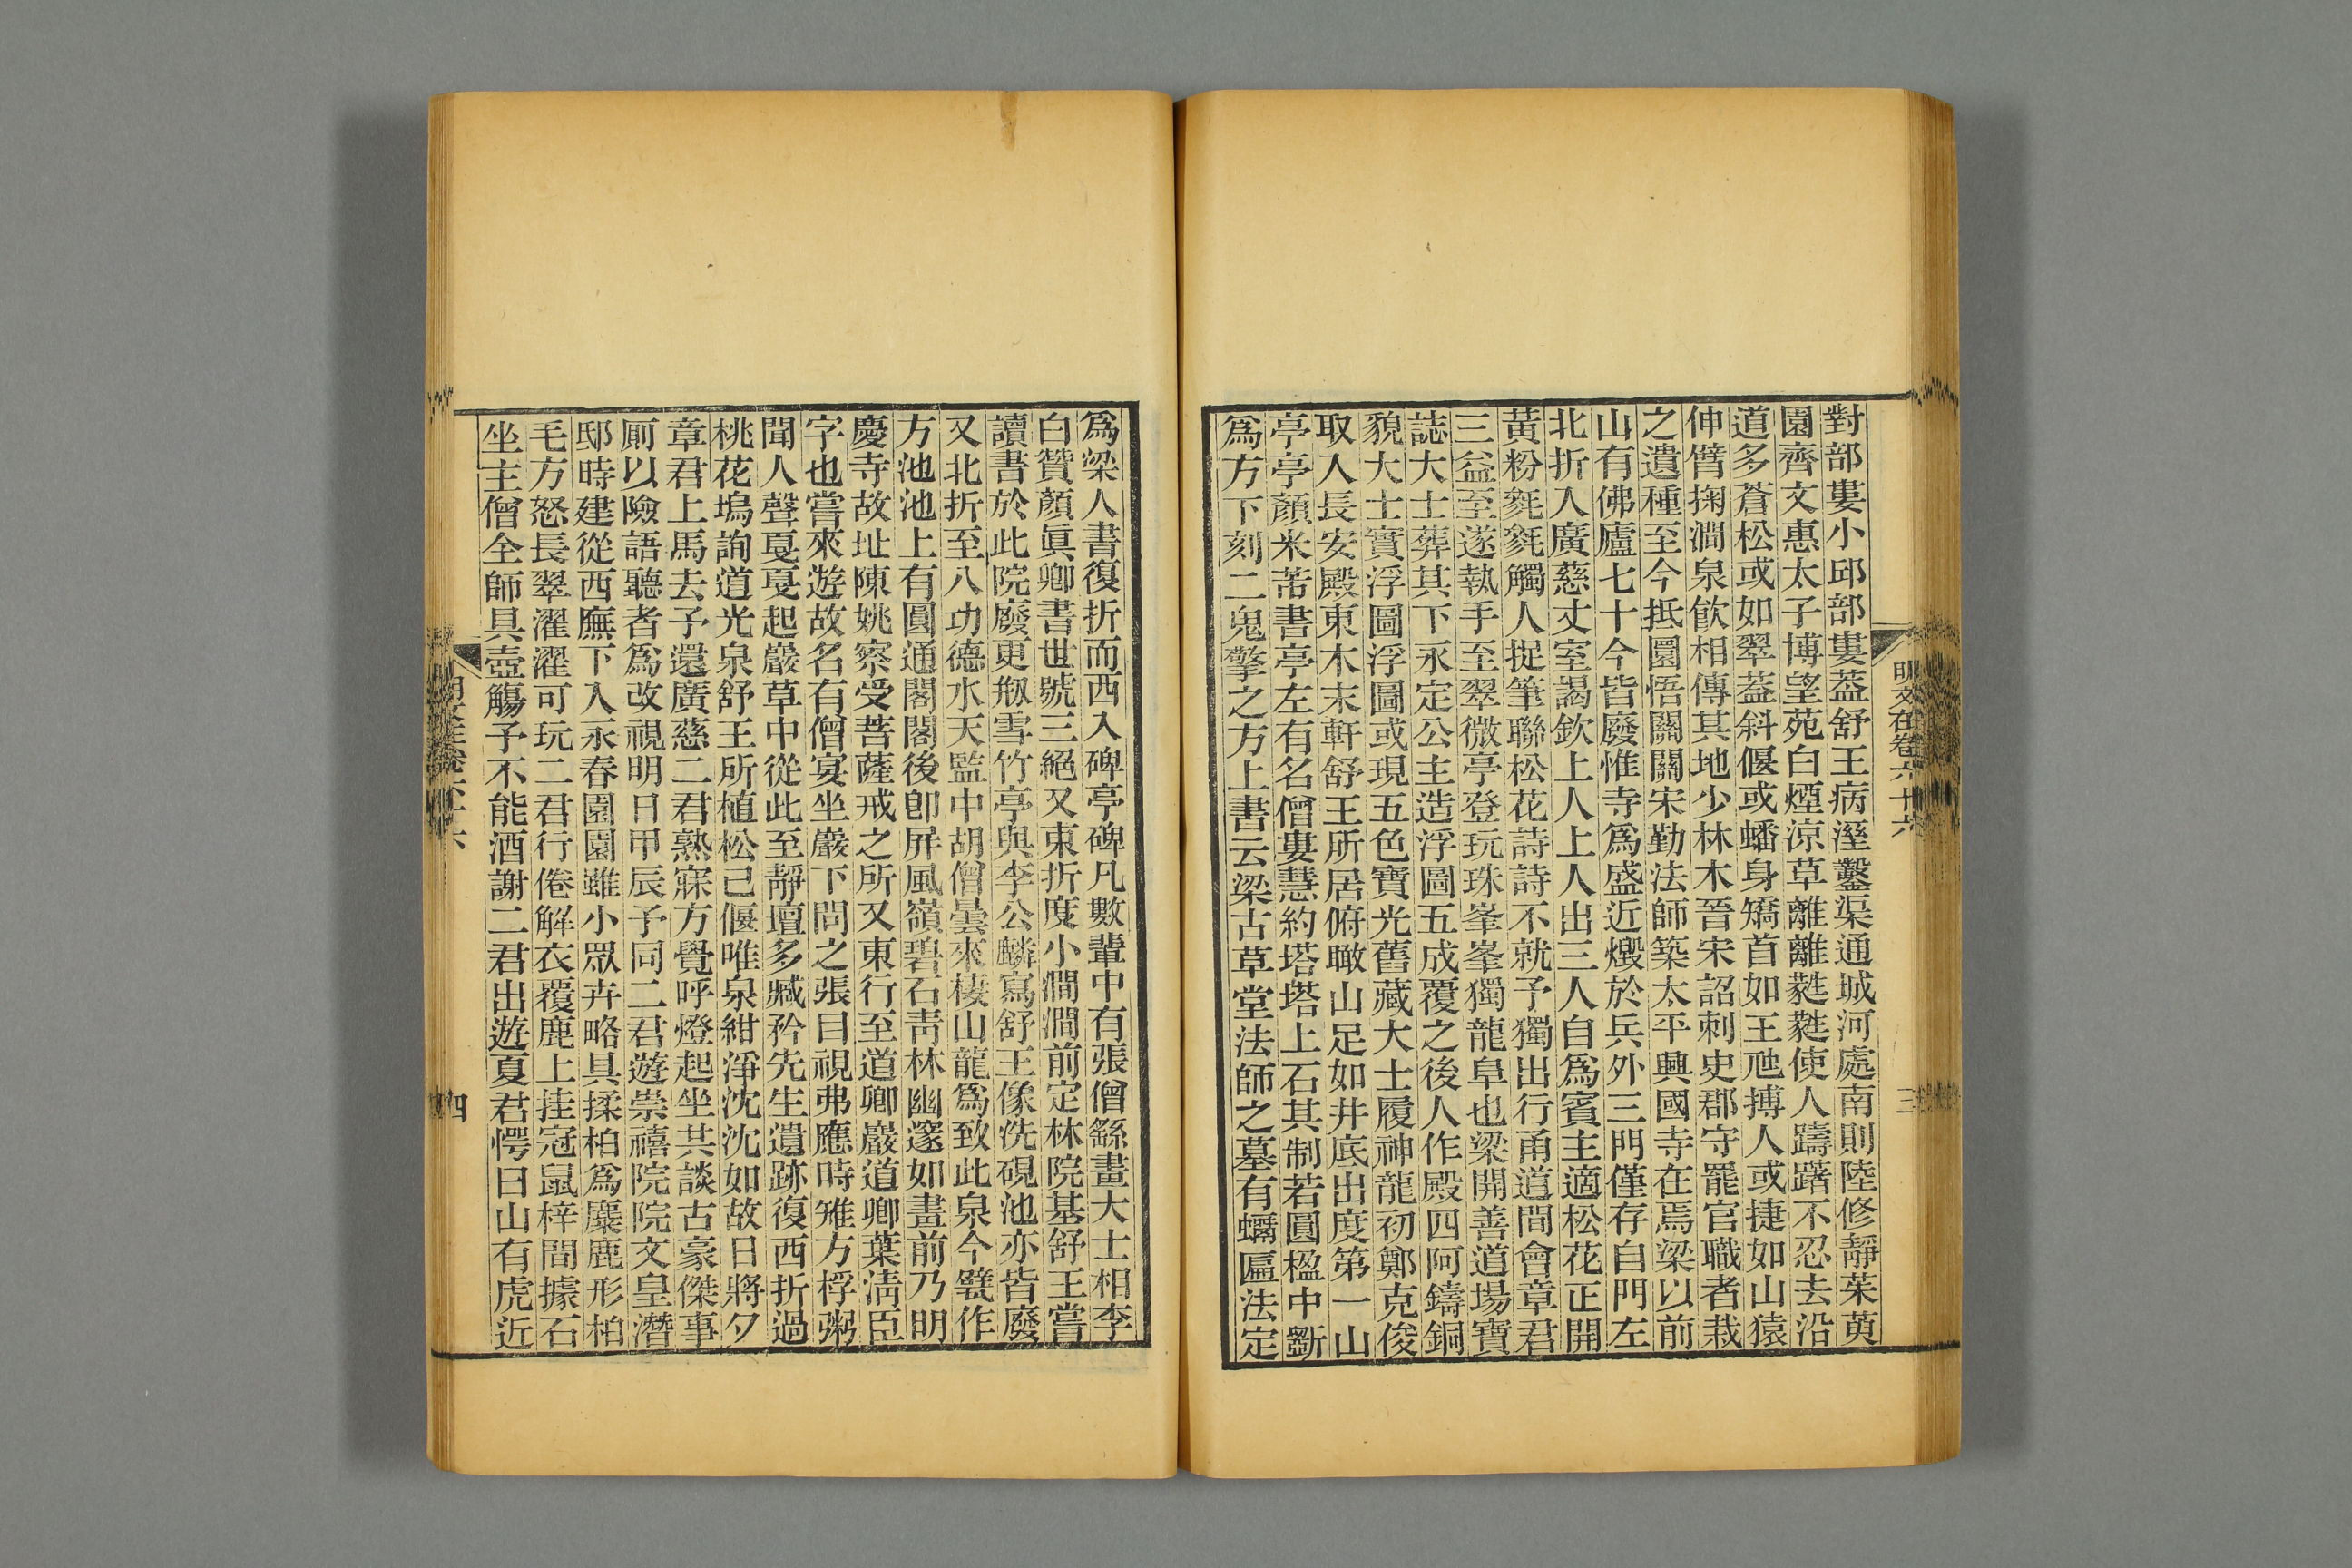 明文在卷六十六
三
對部婁小邱部婁葢舒王病溼鑿渠通城河處南則陸修靜茱萸
園齊文惠太子博望苑白煙涼草離離蕤蕤使人躊躇不忍去沿
道多蒼松或如翠葢斜偃或蟠身矯首如王虺搏人或捷如山猿
伸臂掬澗泉飲相傳其地少林木晉宋詔刺史郡守罷官職者栽
之遺種至今抵圜悟關關宋勤法師築太平興國寺在焉梁以前
山有佛廬七十今皆廢惟寺爲盛近燬於兵外三門僅存自門左
北折入廣慈丈室謁欽上人上人出三人自爲賓主適松花正開
黃粉毿毿觸人捉筆聯松花詩詩不就予獨出行甬道間會章君
三益至遂執手至翠微亭登玩珠峯峯獨龍阜也梁開善道場寶
誌大士葬其下永定公主造浮圖五成覆之後人作殿四阿鑄銅
貌大士實浮圖浮圖或現五色寶光舊藏大士履神龍初鄭克俊
取入長安殿東木末軒舒王所居俯瞰山足如井底出度第一山
亭亭顏米芾書亭左有名僧婁慧約塔塔上石其制若圓楹中斲
爲方下刻二鬼擎之方上書云梁古草堂法師之墓有蠣匾法定
爲梁人書復折而西入碑亭碑凡數輩中有張僧繇畫大士相李
白贊顏眞卿書世號三絕又東折度小澗澗前定林院基舒王嘗
讀書於此院廢更剏雪竹亭與李公麟寫舒王像洗硯池亦皆廢
又北折至八功德水天監中胡僧曇來棲山龍爲致此泉今甓作
方池池上有圓通閣閣後卽屏風嶺碧石靑林幽邃如畫前乃明
慶寺故址陳姚察受菩薩戒之所又東行至道卿巖道卿葉淸臣
字也嘗來遊故名有僧宴坐巖下問之張目視弗應時雉方桴粥
聞人聲戛戛起巖草中從此至靜壇多臧矜先生遺跡復西折過
桃花塢詢道光泉舒王所植松已偃唯泉紺淨沈沈如故日將夕
章君上馬去予還廣慈二君熟寐方覺呼燈起坐共談古豪傑事
廁以險語聽者爲改視明日甲辰予同二君遊崇禧院院文皇潛
邸時建從西廡下入永春園園雖小眾卉略具揉柏爲麋鹿形柏
毛方怒長翠濯濯可玩二君行倦解衣覆鹿上挂冠鼠梓間據石
坐主僧全師具壺觴予不能酒謝二君出遊夏君愕曰山有虎近
四